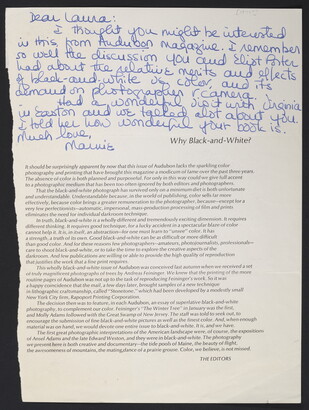 Dear Laura:
I thought you might be interested
in this from Audubon magazine. I remember
so well the discussion you and Eliot Porter
had about the relative merits and effects
of black-and-white vs color and its
demand on photographer & camera.
Had a wonderful visit with Virginia
in Easton and we talked alot about you.
I told her how wonderful your book is.
Much love,
Why Black-and-White?
It should be surprisingly apparent by now that this issue of Audubon lacks the sparkling color
photography and printing that has brought this magazine a modicum of fame over the past three years.
The absence of color is both planned and purposeful. For only in this way could we give full accent
to a photographic medium that has been too often ignored by both editors and photographers.
That the black-and-white photograph has survived only on a mountain shelf is both unfortunate
and understandable. Understandable because, in the world of publishing, color sells far more
effectively, because color brings a greater remuneration to the photographer. Because—except for a
very few perfectionists—automatic, impersonal, mass-production processing of film and prints
eliminates the need for individual darkroom technique.
In truth, black-and-white is a wholly different and tremendously exciting dimension. It requires
different thinking. It requires good technique, for a lucky accident in a spectacular blaze of color
cannot help it. It is, in itself, an abstraction—for one must learn to "unsee" color. It has
a strength, a truth of its own. Good black-and-white can be as difficult or more difficult
than good color. And for these reasons few photographers—amateurs, photojournalists, professionals—
care to shoot black-and-white, or to take the time to explore the creative aspects of the
darkroom. And few publications are willing to provide the high quality of reproduction
that justifies the work that a fine print requires.
This wholly black-and-white issue of Audubon was conceived last autumn when we received a set
of truly magnificent photographs of trees by Andreas Feininger. We knew that the printing of the more
routine pages of Audubon was not up to the task of reproducing Feininger's superb photos. So it was
a happy coincidence that the mail, a few days later, brought samples of a new technique
in lithographic craftsmanship, called "Stonetone," which had been developed by a modestly small
New York City firm, Rapoport Printing Corporation.
The decision then was to feature, in each Audubon, an essay of superlative black-and-white
photography, to complement our color. Feininger's "The Winter Tree" in January was the first,
and Molly Adams followed with the Great Swamp of New Jersey. The staff was told to seek out, to
encourage the submission of fine black-and-white pictures as well as the finest color. And, when enough
material was on hand, we would devote one entire issue to black-and-white. It is, and we have.
The first great photographic interpretations of the American landscape were, of course, the expositions
of Ansel Adams and the late Edward Weston, and they were in black-and-white. The photography
we present here is both creative and documentary—the tide pools of Maine, the beauty of flight,
the awesomeness of mountains, the mating dance of a prairie grouse. Color, we believe, is not missed.
THE EDITORS